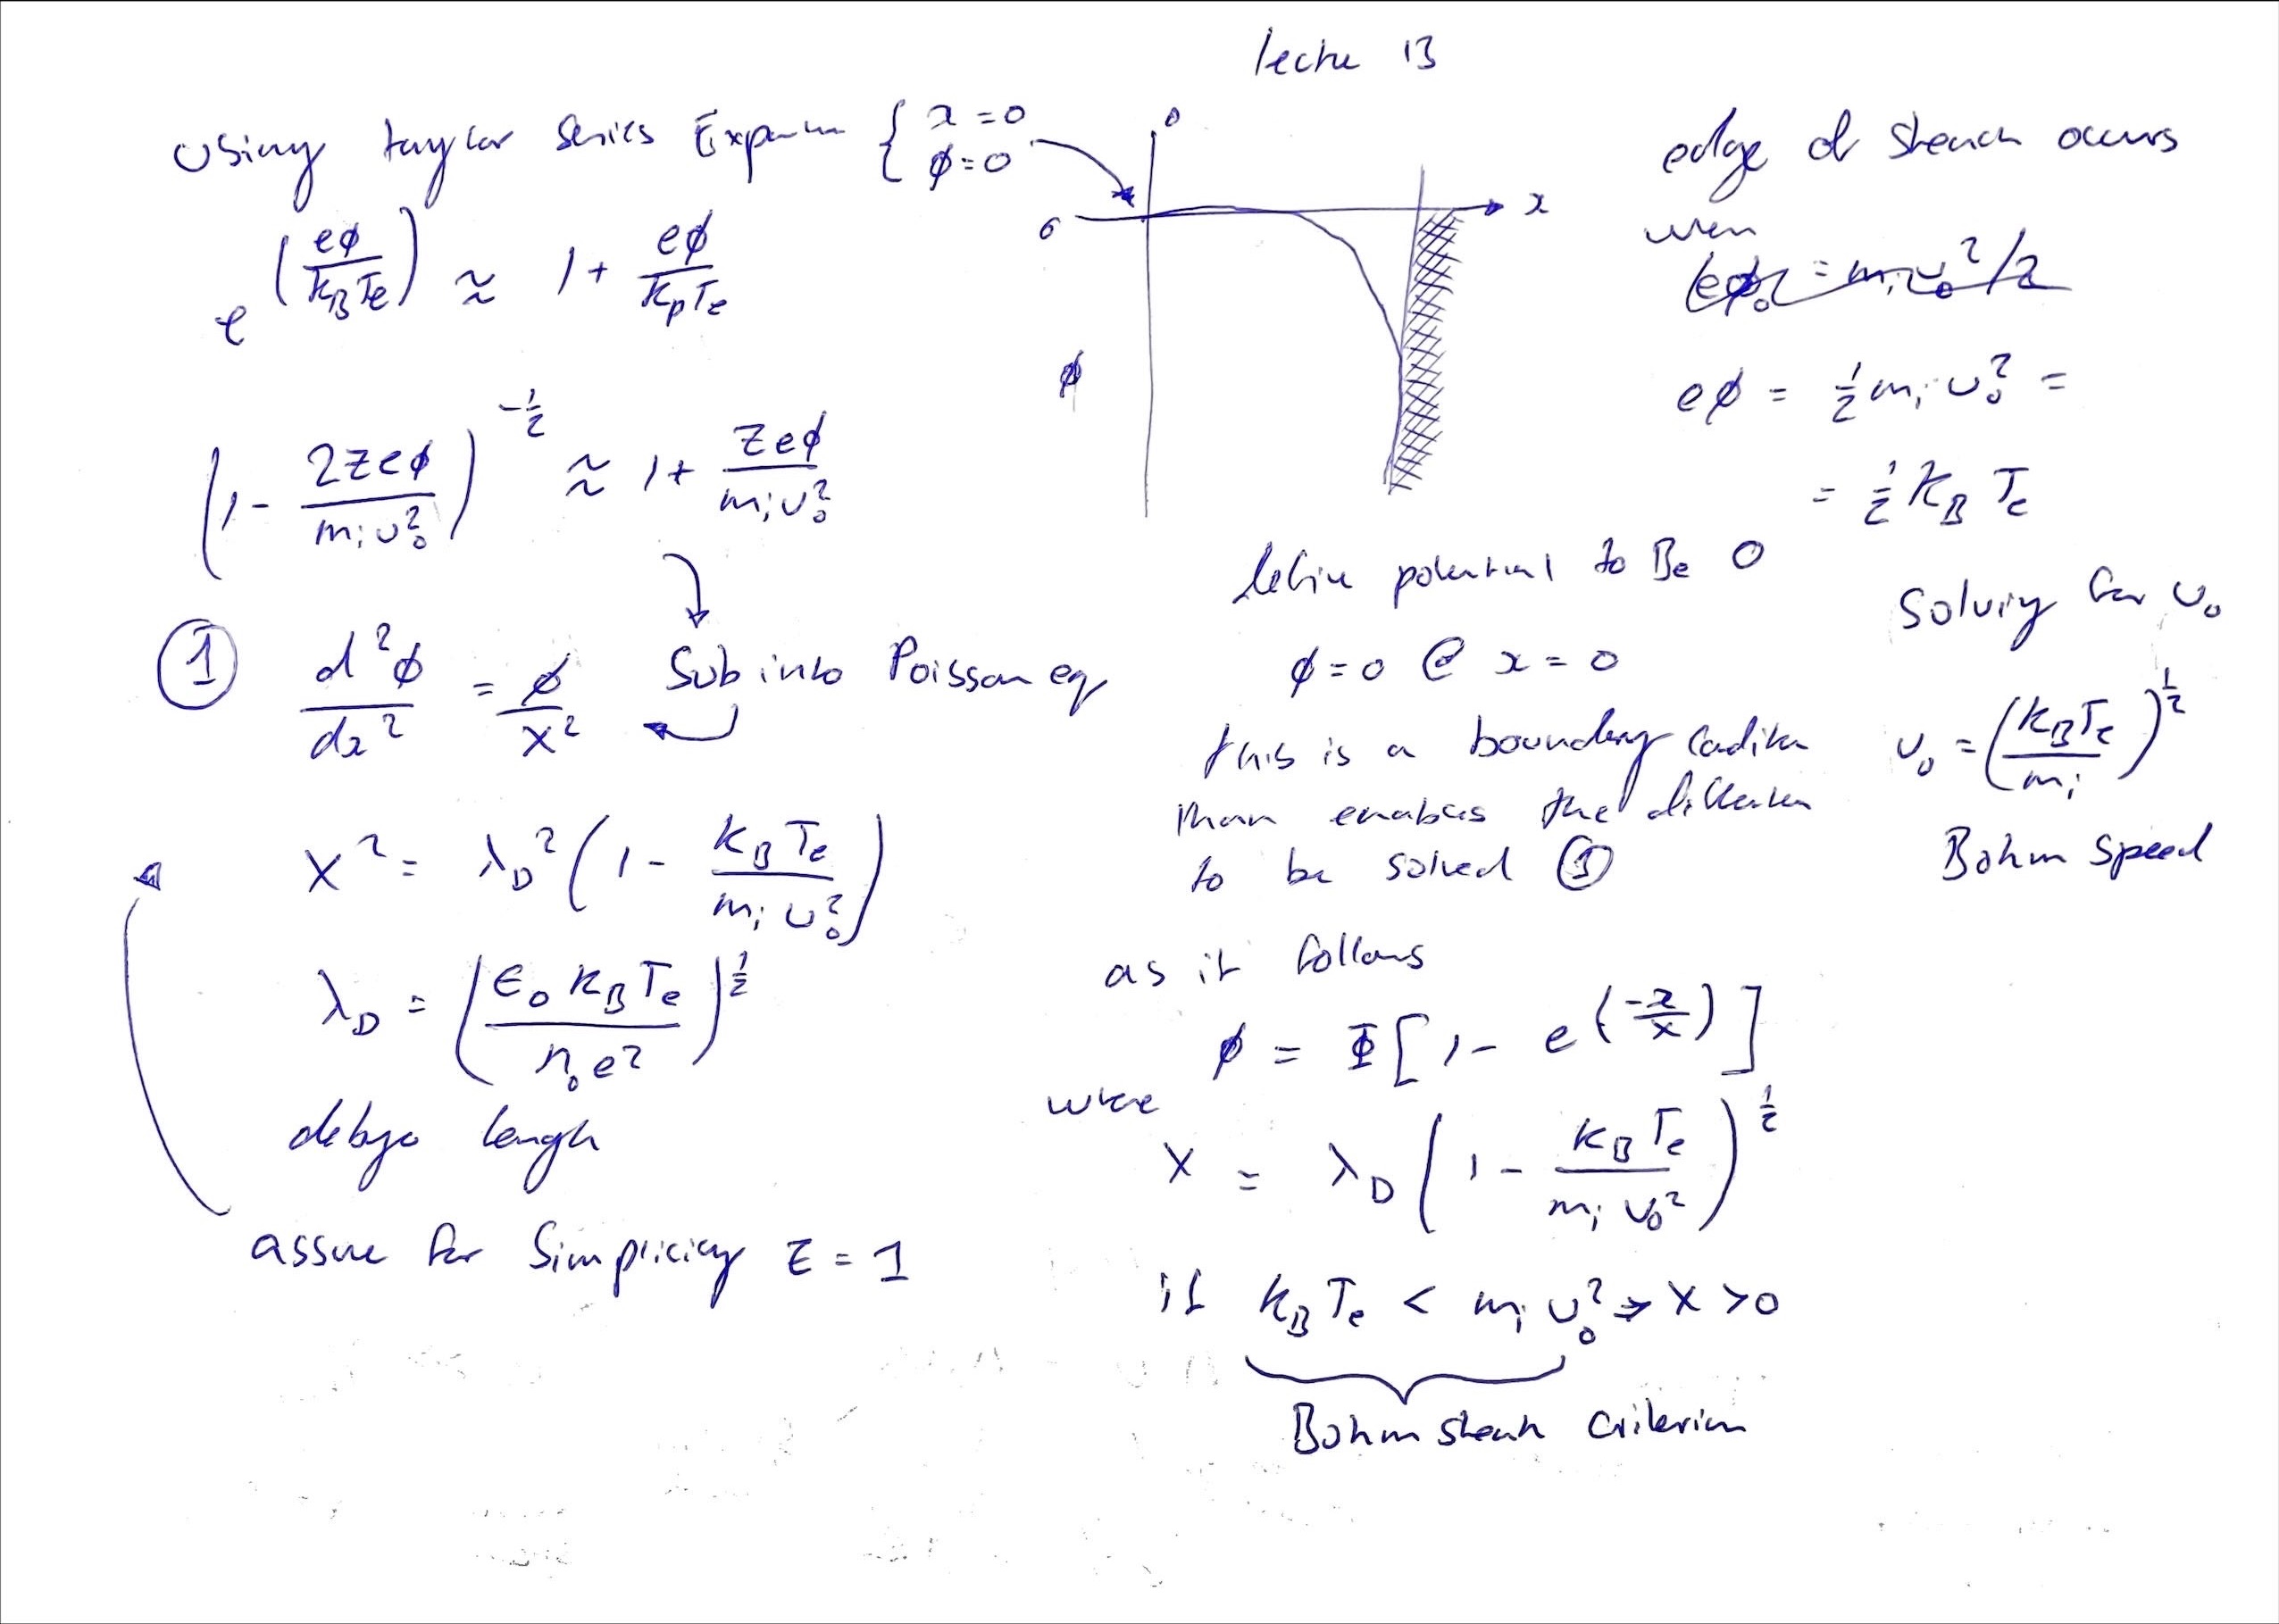 lectu 13
Using taylor Series Expan { x = 0
ϕ = 0
e^(eϕ / k_B Te) ≈ 1 + eϕ / k_B Te
(1 - 2zeϕ / m_i υ_0^2)^(-1/2) ≈ 1 + zeϕ / m_i υ_0^2
① d^2ϕ / dx^2 = ϕ / X^2 Sub into Poisson eq
X^2 = λ_D^2 (1 - k_B Te / m_i υ_0^2)
λ_D = (ϵ_0 k_B Te / n_0 e^2)^(1/2)
debye length
assue for Simplicity Z = 1
0
0
x
ϕ
define potential to Be 0
ϕ = 0 @ x = 0
this is a boundary
enables the
to be solved ①
as it follows
ϕ = Φ [1 - e^(-x/X)]
where
X = λ_D (1 - k_B Te / m_i υ_0^2)^(1/2)
if k_B Te < m_i υ_0^2 → X > 0
Bohm sheath Criterion
edge of sheath occurs
when
(eϕ_0 = m_i υ_0^2 / 2
eϕ = 1/2 m_i υ_0^2 =
= 1/2 k_B Te
Solving for υ_0
υ_0 = (k_B Te / m_i)^(1/2)
Bohm speed